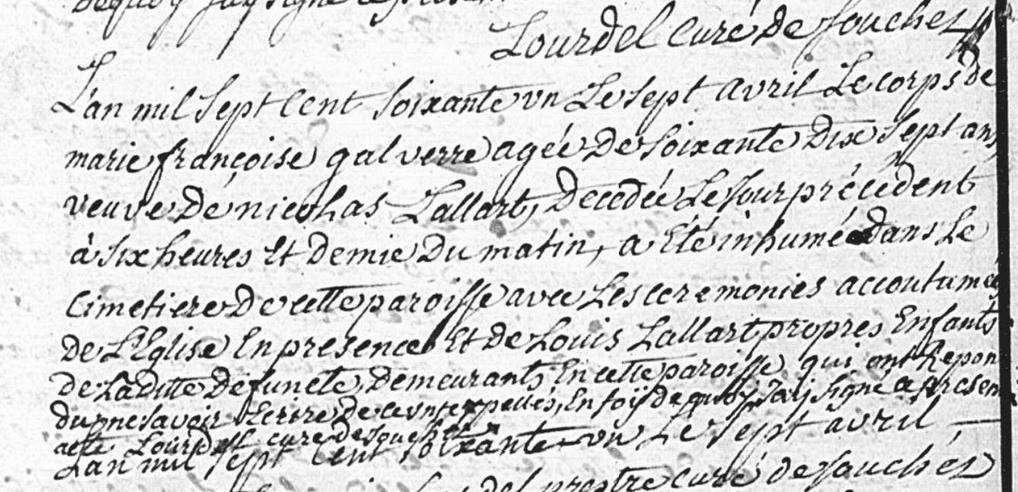 Lourdel Curé de souchez
L'an mil sept Cent soixante vn Le sept avril Le corps de
marie françoise galverre agée De soixante Dix sept ans,
veuve De nicolas Lallart, Decedée Le Jour précedent
à six heures Et demie Du matin, a été inhumé dans Le
Cimetiere De cette paroisse avec Les ceremonies accoutumées
de L'Eglise En presence Et de Louis Lallart propres Enfants
de La ditte Defuncte, Demeurants En cette paroisse qui ont Repon
du ne savoir Ecrire De ce interpelles, En foi de quoy J'ay signé ce present
acte Lourdel curé de souchez
L'an mil sept Cent soixante vn Le sept avril
prestre curé de souchez